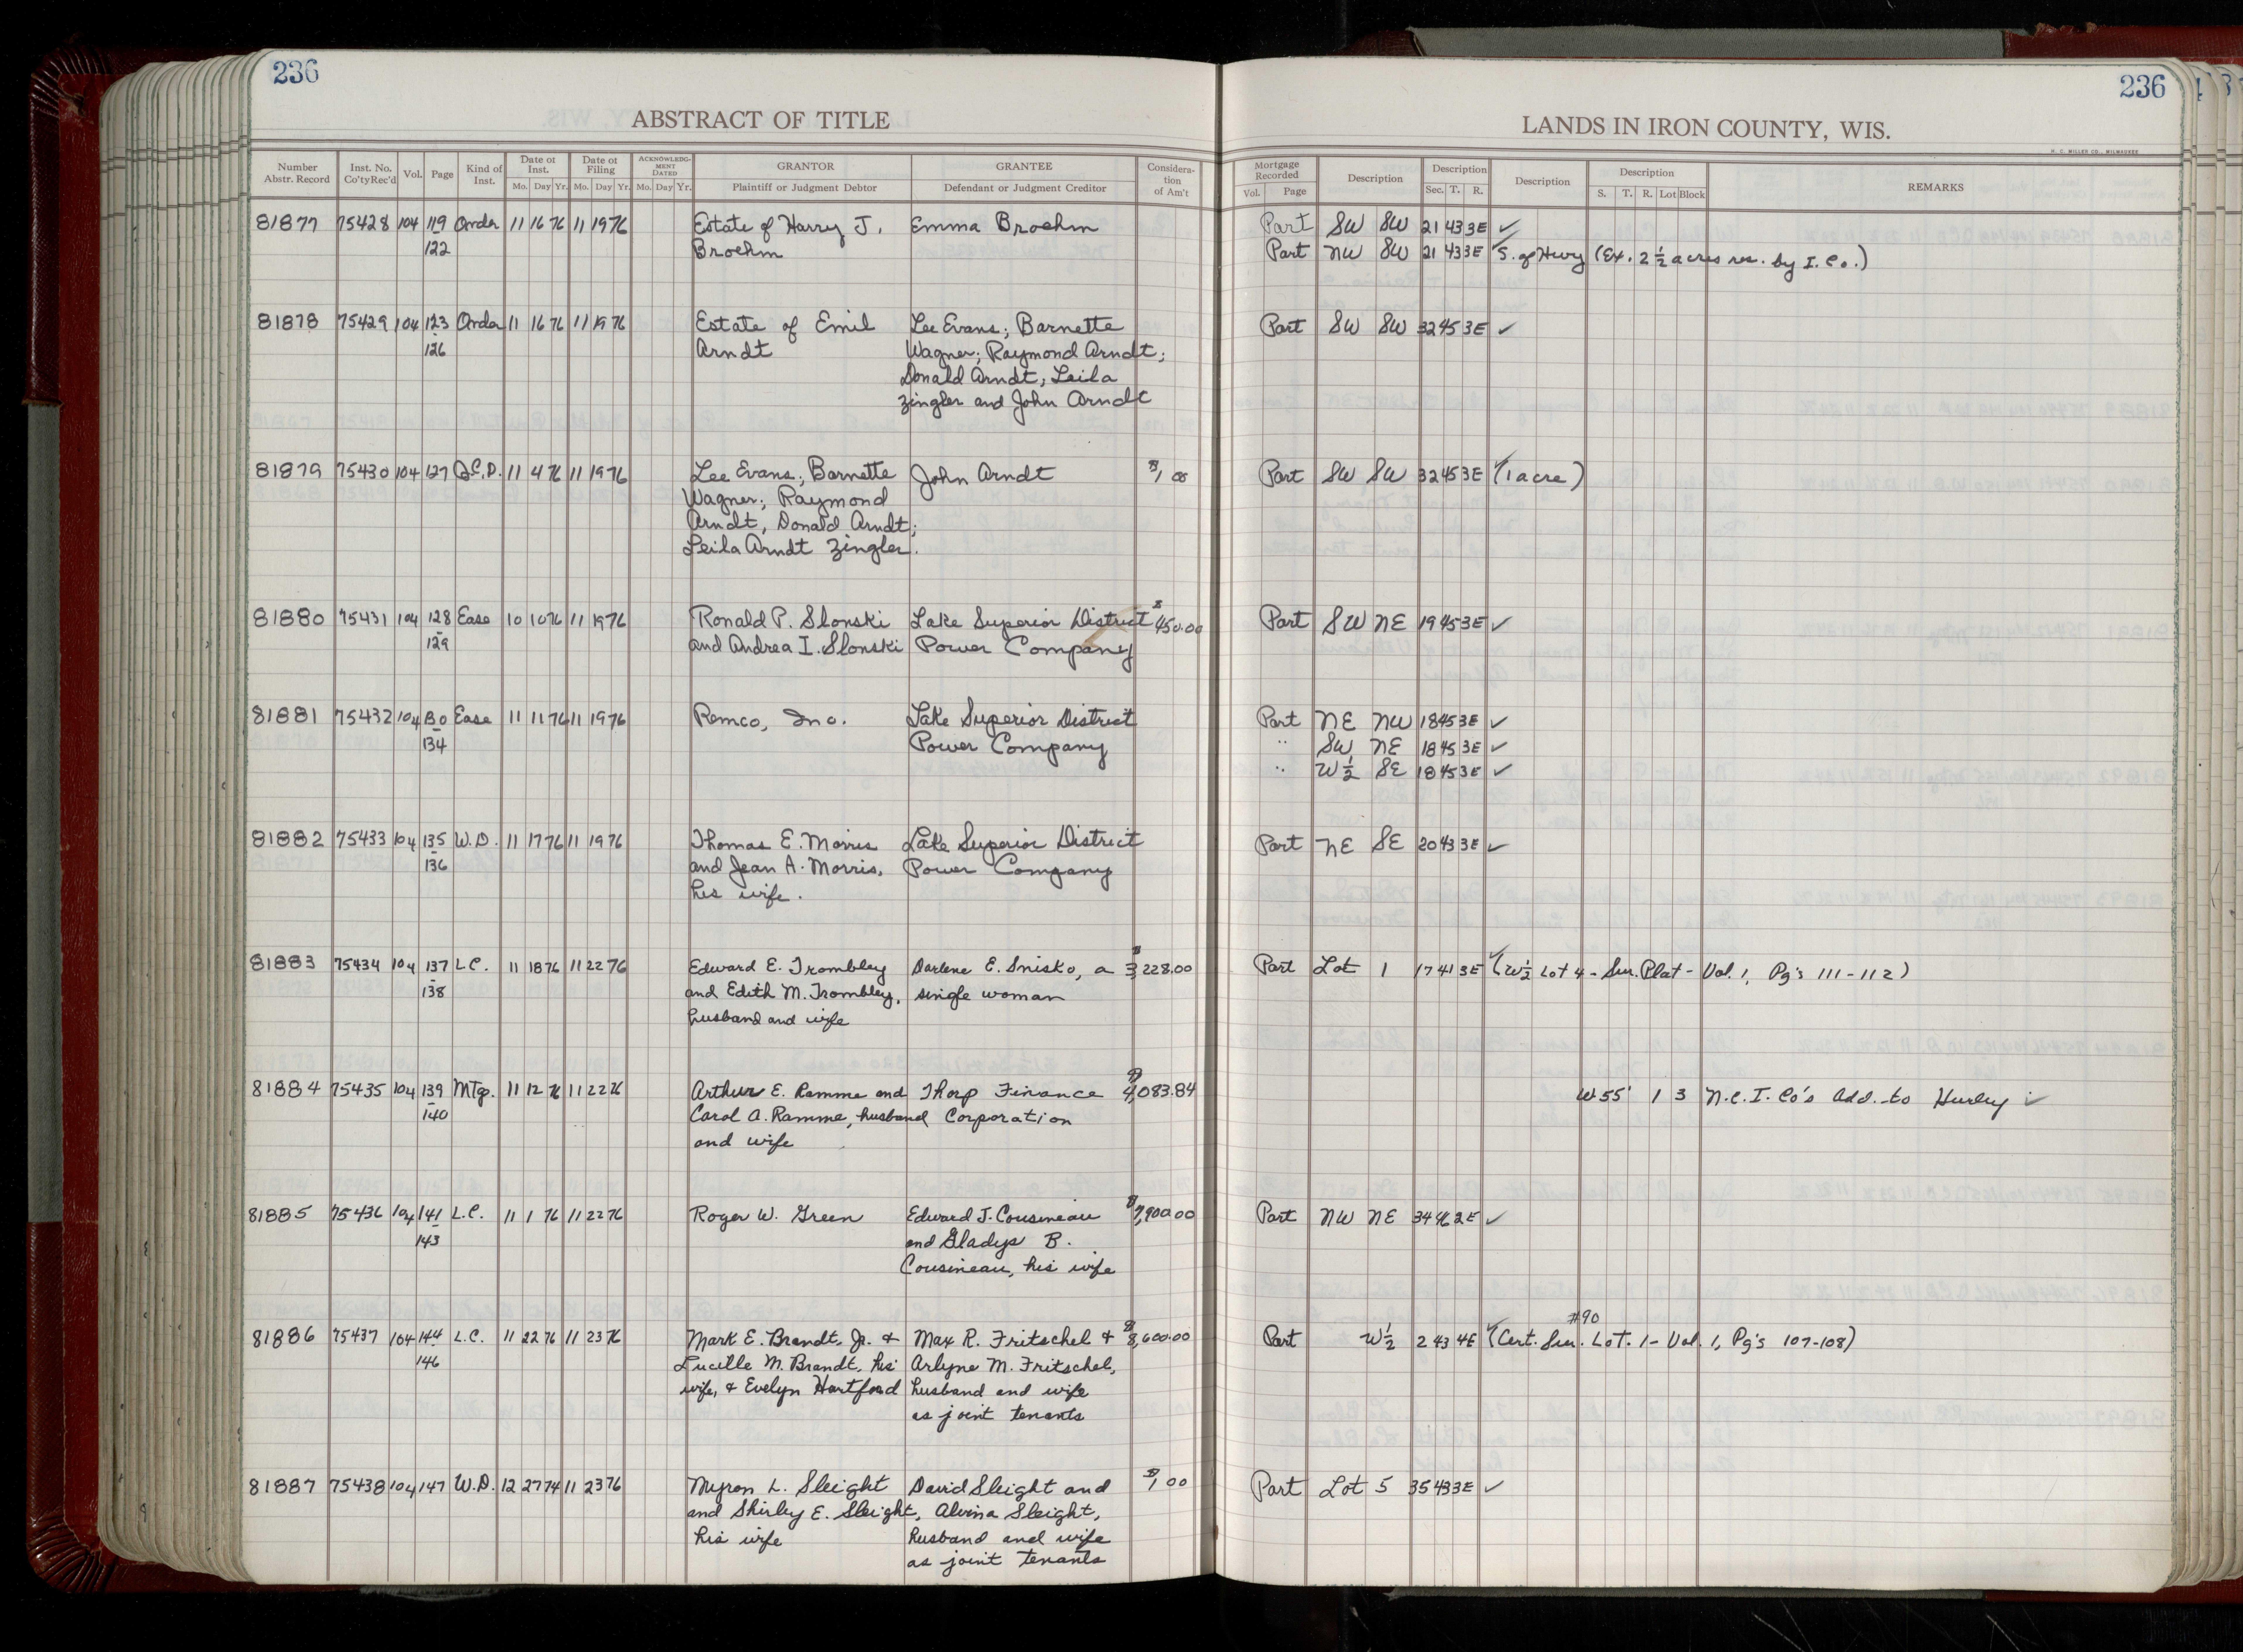 236
236
ABSTRACT OF TITLE
LANDS IN IRON COUNTY, WIS.
H. C. MILLER CO., MILWAUKEE
Number Abstr. Record Inst. No. Co'ty Rec'd Vol. Page Kind of Inst. Date of Inst. Mo. Day Yr. Date of Filing Mo. Day Yr. ACKNOWLEDGMENT DATED Mo. Day Yr. GRANTOR Plaintiff or Judgment Debtor GRANTEE Defendant or Judgment Creditor Consideration of Am't
Mortgage Recorded Vol. Page Description Description Sec. T. R. Description Description S. T. R. Lot Block REMARKS
81877 75428 104 119 Order 11 16 76 11 19 76 Estate of Harry J. Emma Broehm Part SW SW 21 43 3E ✓
- 122 Broehm Part NW SW 21 43 3E ✓ S. of Hwy (Ex. 2 1/2 acres res. by I. Co.)
81878 75429 104 123 Order 11 16 76 11 19 76 Estate of Emil Lee Evans; Barnette Part SW SW 32 45 3E ✓
- 126 Arndt Wagner; Raymond Arndt;
Donald Arndt; Leila
Zingler and John Arndt
81879 75430 104 127 Q.C.D. 11 4 76 11 19 76 Lee Evans; Barnette John Arndt $1 00 Part SW SW 32 45 3E ✓ (1 acre)
Wagner; Raymond
Arndt, Donald Arndt;
Leila Arndt Zingler.
81880 75431 104 128 Ease 10 10 76 11 19 76 Ronald P. Slonski Lake Superior District $450.00 Part SW NE 19 45 3E ✓
- 129 and Andrea I. Slonski Power Company
81881 75432 104 130 Ease 11 11 76 11 19 76 Remco, Inc. Lake Superior District Part NE NW 18 45 3E ✓
- 134 Power Company " SW NE 18 45 3E ✓
" W 1/2 SE 18 45 3E ✓
81882 75433 104 135 W.D. 11 17 76 11 19 76 Thomas E. Morris Lake Superior District Part NE SE 20 43 3E ✓
- 136 and Jean A. Morris, Power Company
his wife.
81883 75434 104 137 L.C. 11 18 76 11 22 76 Edward E. Trombley Darlene E. Snisko, a $3,228.00 Part Lot 1 17 41 3E ✓ (W 1/2 Lot 4 - Sur. Plat - Vol. 1, Pg's 111-112)
- 138 and Edith M. Trombley, single woman
husband and wife
81884 75435 104 139 Mtg. 11 12 76 11 22 76 Arthur E. Ramme and Thorp Finance $4,083.84 W 55' 1 3 N.C.I. Co's Add. to Hurley ✓
- 140 Carol A. Ramme, husband Corporation
and wife
81885 75436 104 141 L.C. 11 1 76 11 22 76 Roger W. Green Edward J. Cousineau $7,900.00 Part NW NE 34 46 2E ✓
- 143 and Gladys B.
Cousineau, his wife
#90
81886 75437 104 144 L.C. 11 22 76 11 23 76 Mark E. Brandt, Jr. & Max R. Fritschel & $8,600.00 Part W 1/2 2 43 4E ✓ (Cert. Sur. Lot. 1 - Vol. 1, Pg's 107-108)
- 146 Lucille M. Brandt, his Arlyne M. Fritschel,
wife, & Evelyn Hartford husband and wife
as joint tenants
81887 75438 104 147 W.D. 12 27 74 11 23 76 Myron L. Sleight David Sleight and $1 00 Part Lot 5 35 43 3E ✓
and Shirley E. Sleight, Alvina Sleight,
his wife husband and wife
as joint tenants